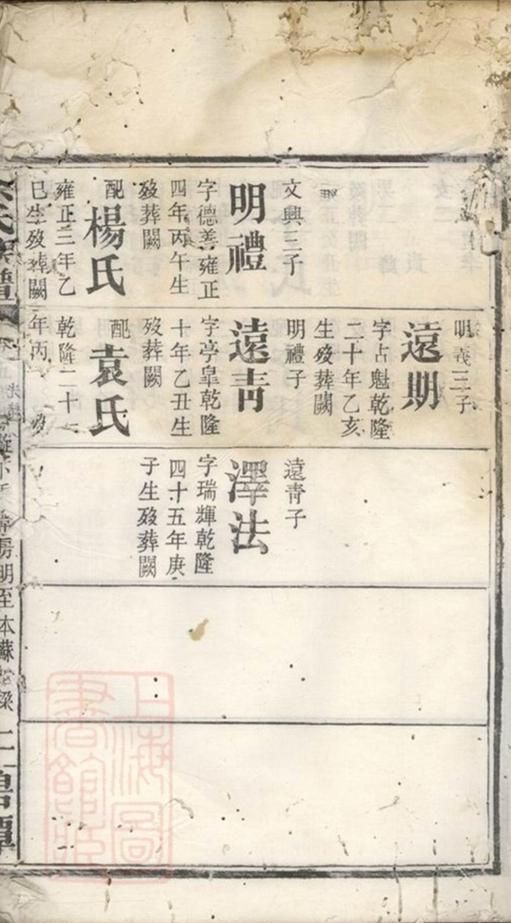 文興三子
明禮
字德善雍正
四年丙午生
歿葬闕
配
楊氏
雍正三年乙
巳生歿葬闕
明義三子
遠期
字占魁乾隆
二十年乙亥
生歿葬闕
明禮子
遠青
字亭皐乾隆
十年乙丑生
歿葬闕
配
袁氏
乾隆二十一
年丙
遠青子
澤法
字瑞輝乾隆
四十五年庚
子生歿葬闕
上海圖
書館藏